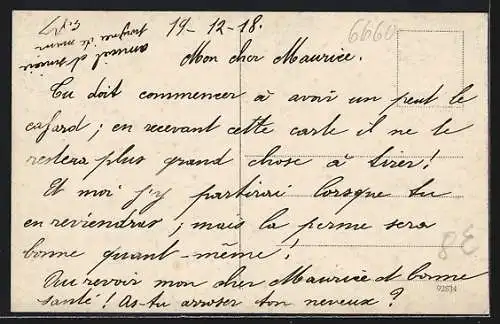 19-12-18.
6660
Mon cher Maurice.
Tu doit commencer à avoir un peut le
cafard; en recevant cette carte il ne te
restera plus grand chose à tirer!
Et moi j'y partirai lorsque tu
en reviendras; mais la perme sera
bonne quant-même!
Au revoir mon cher Maurice et bonne
santé! As-tu arroser ton neveux?
8E
92814
amical et
poignée de main